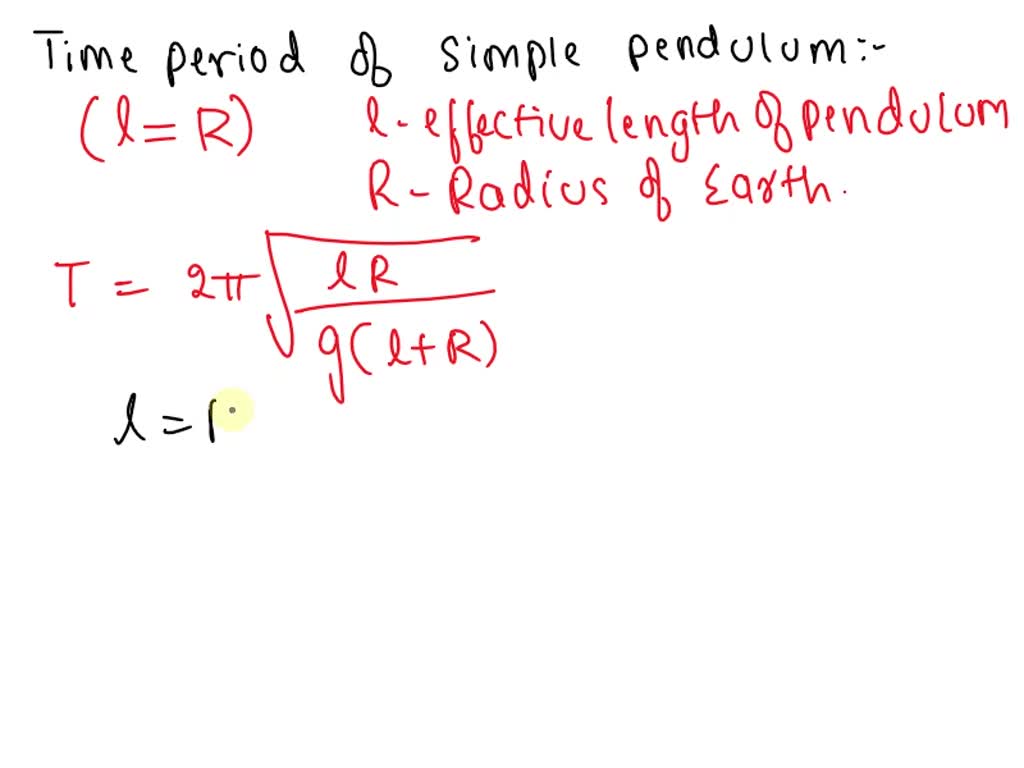 Time period of simple pendulum:-
(l=R) l-effective length of pendulum
R-Radius of Earth.
T = 2π√(lR / g(l+R))
l =